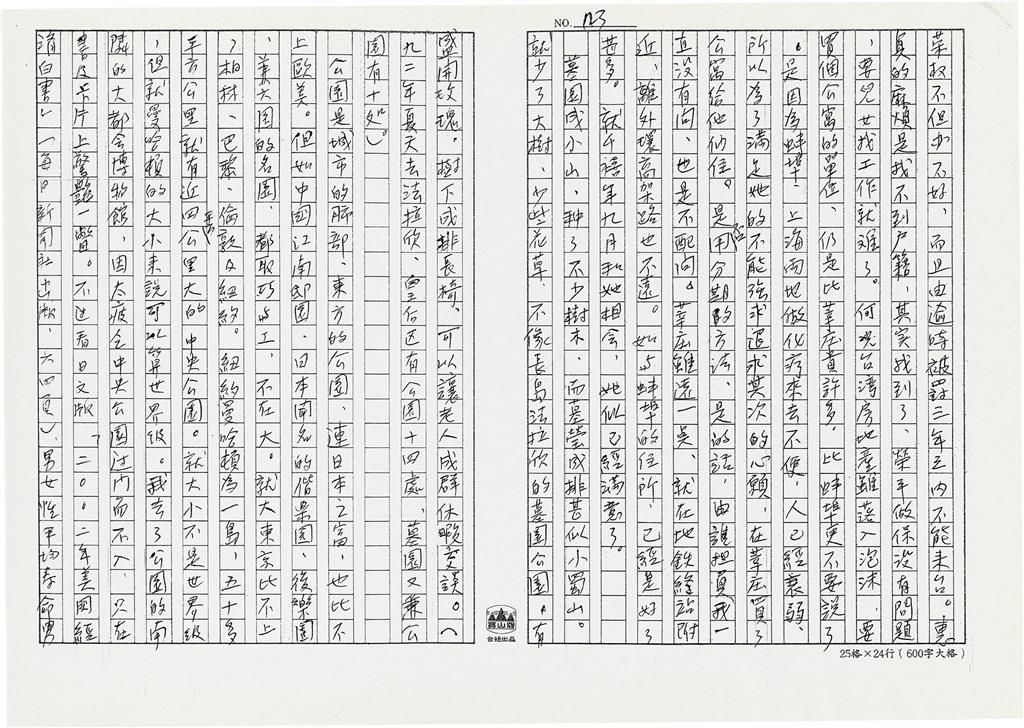 NO. 123
葉权不但办不好，而且由逾時被罰三年之內不能来台。東
員的麻煩是找不到户籍，其実找到了，榮平做保没有問題
，要兒女找工作就难了。何况台湾房地產雖落入泡沫，要
買個公寓的單位，仍是比莘庄貴許多。比蚌埠更不要說了
。是因為蚌埠、上海兩地做化疗来去不便，人已經衰弱，
所以為了满足她的不能強求退求其次的心願，在莘庄買了
公寓给他们住。是用分期的方法，是的話，由誰担負我一
直没有问，也是不配问。莘庄雖遠一点，就在地鉄終站附
近，離外環高架路也不遠。如与蚌埠的住所，已經是好了
甚多。就午禧年九月和她相会，她似已經满意了。
墓園成小山，种了不少樹木，而墓塋成排甚似小蜀山。
就少了大樹，少些花草，不像長島法拉欣的墓園公園。有
25格×24行（600字大格）
盛開玫瑰。樹下成排長椅，可以讓老人成群休暇交談。（
九二年夏天去法拉欣，皇后区有公園十四處，墓園又兼公
園有十处）。
公園是城市的肺部，東方的公園，連日本之富，也比不
上欧美。但如中國江南即園，日本南名的偕樂园，後樂園
，兼六园的名園，都取巧与工，不在大。就大東京比不上
，柏林、巴黎、倫敦及紐約。紐約曼哈頓為一島，五十多
平方公里就有近四平方公里大的中央公園。就大小不是世界级
，但就曼哈頓的大小来說可以算世界级。我去了公園的南
隣的大都会博物館，因太疲乏中央公園过门而不入，只在
書及卡片上驚艷一瞥。不过看日文版「二〇〇二年美国經
済白書」（每日新聞社出版，六四頁），男女性平均寿命男
台紙出品